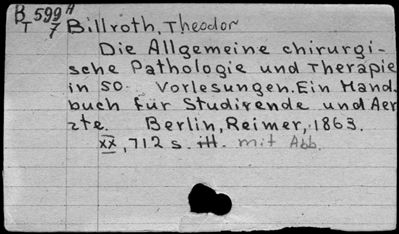 B 599 H
T 7 Billroth, Theodor
Die Allgemeine chirurgi-
sche Pathologie und Therapie
in 50. Vorlesungen. Ein Hand.
buch für Studirende und Aer
zte. Berlin, Reimer, 1863.
XX, 712 s. ill. mit Abb.